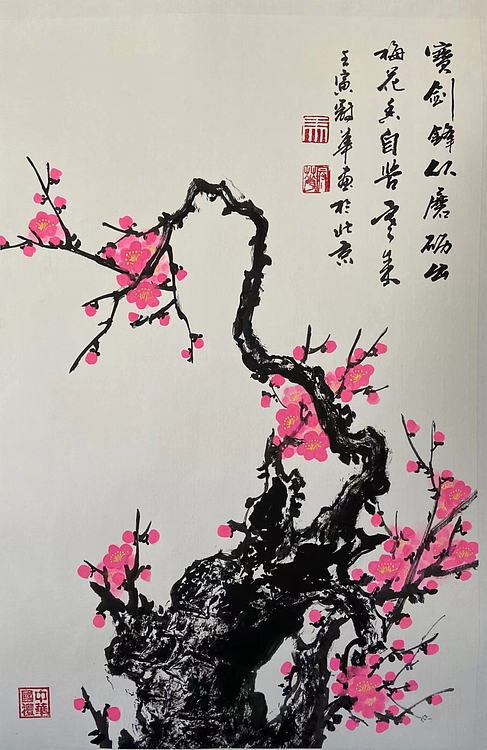 寶剑鋒从磨砺出
梅花香自苦寒来
壬寅 華画於北京
中華
國禮